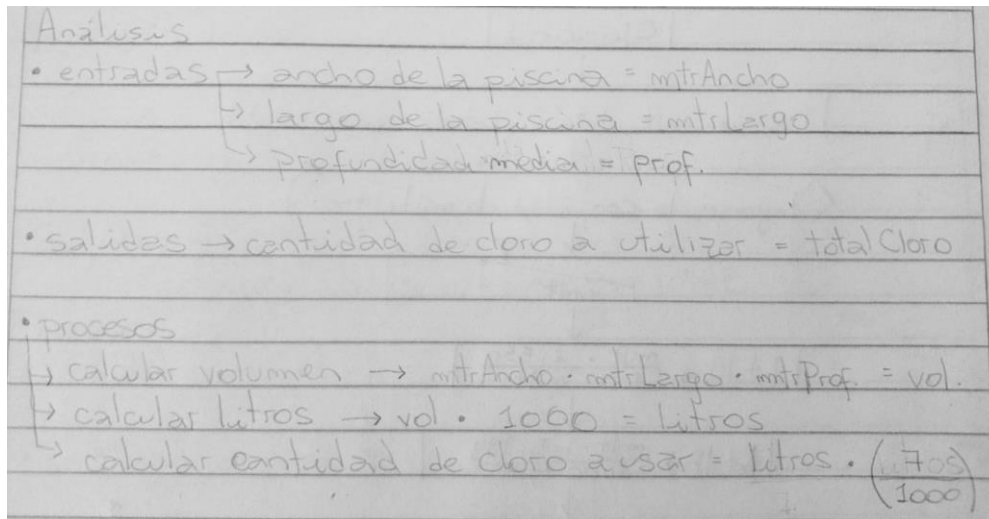 Análisis
• entradas → ancho de la piscina = mtrAncho
↳ largo de la piscina = mtrLargo
↳ profundidad media = prof.
• salidas → cantidad de cloro a utilizar = totalCloro
• procesos
↳ calcular volumnen → mtrAncho · mtrLargo · mtrProf. = vol.
↳ calcular litros → vol · 1000 = litros
↳ calcular cantidad de cloro a usar = litros · (
1000)